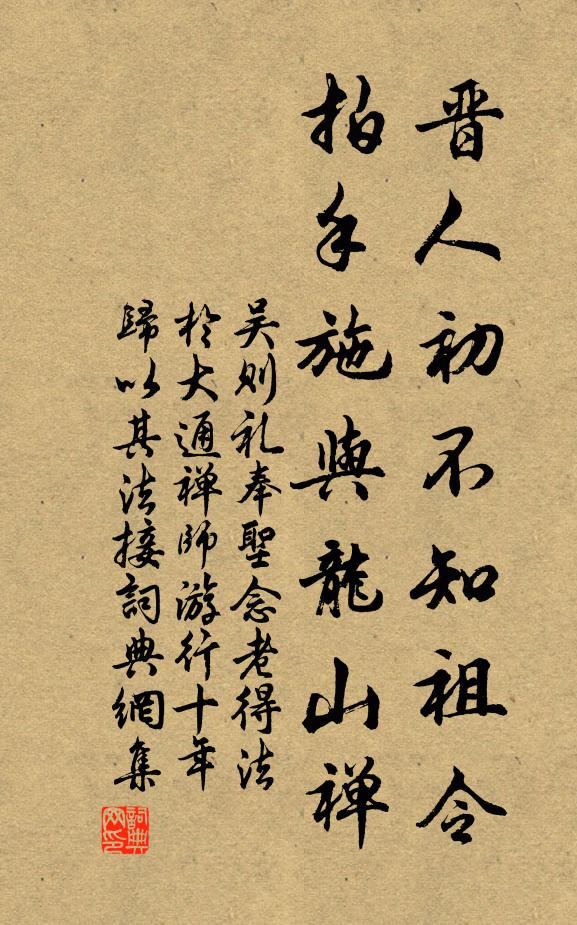 晋人初不知祖令
拍手施與龍山禅
吴则礼奉聖念老得法
於大通禅師游行十年
歸以其法接詞典網集
詞典网印